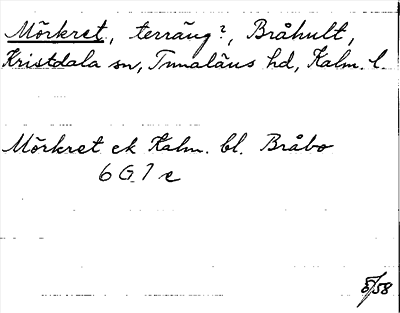 Mörkret, terräng?, Bråhult,
Kristdala sn, Tunaläns hd, Kalm. l.
Mörkret ek Kalm. bl. Bråbo
6 G 7 e
8/58